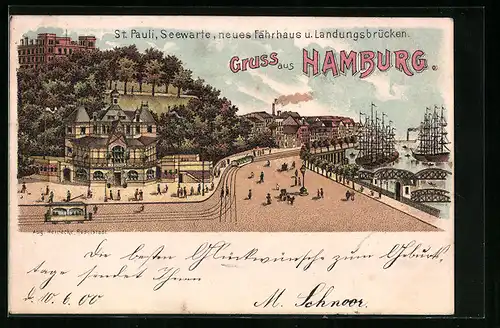 St. Pauli, Seewarte, neues Fährhaus u. Landungsbrücken.
Gruss aus HAMBURG.
Aug. Heinecke, Radolfzell
Die besten Glückwünsche zum Geburts
tage sendet Ihnen
d. 10.6.00 M. Schnoor.